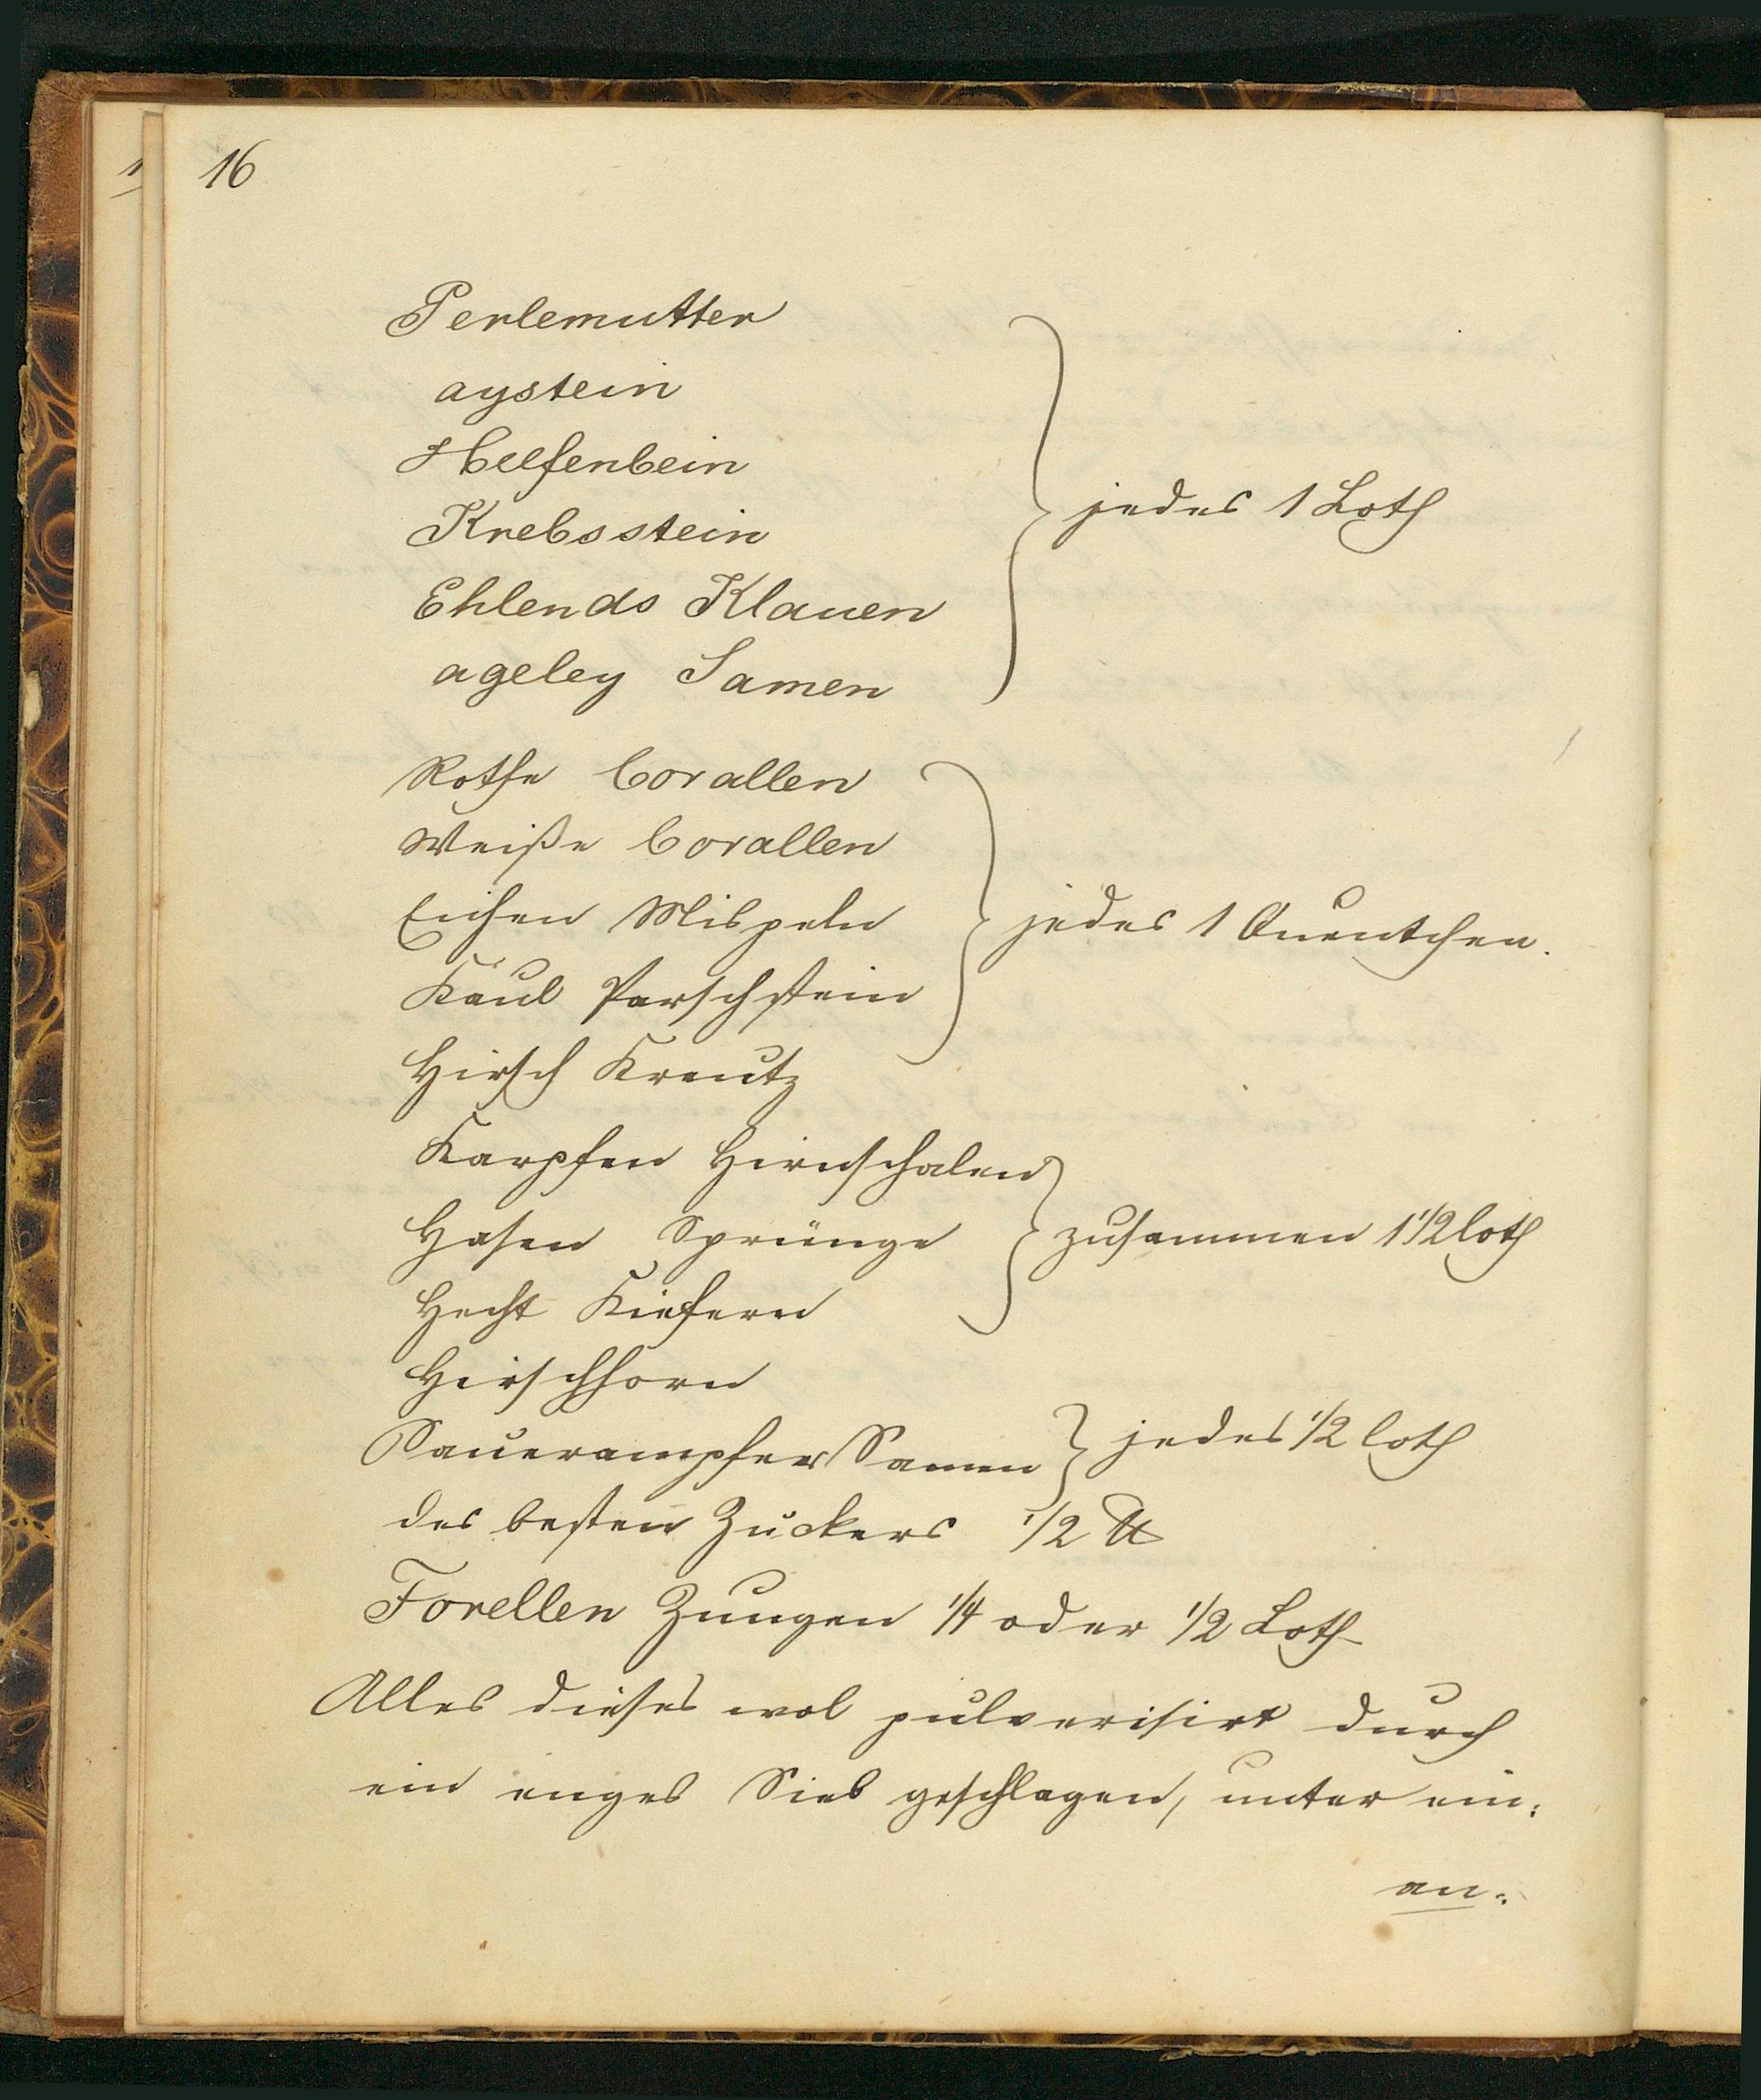 16
Perlemutter
aystein
Helfenbein
Krebsstein
jedes 1 Loth
Ehlends Klauen
ageley Samen
Rothe Corallen
Weiße Corallen
Eichen Mispeln
jedes 1 Quentchen.
Kaul Parschstein
Hirsch Kreutz
Karpfen Hirnschalen
Hasen Sprünge
zusammen 1 1/2 loth
Hecht Kiefern
Hirschhorn
Sauerampfer Samen
jedes 1/2 loth
des besten Zuckers 1/2 ℔
Forellen Zungen 1/4 oder 1/2 Loth
Alles dieses wol pulverisirt durch
ein enges Sieb geschlagen, unter ein:
an: